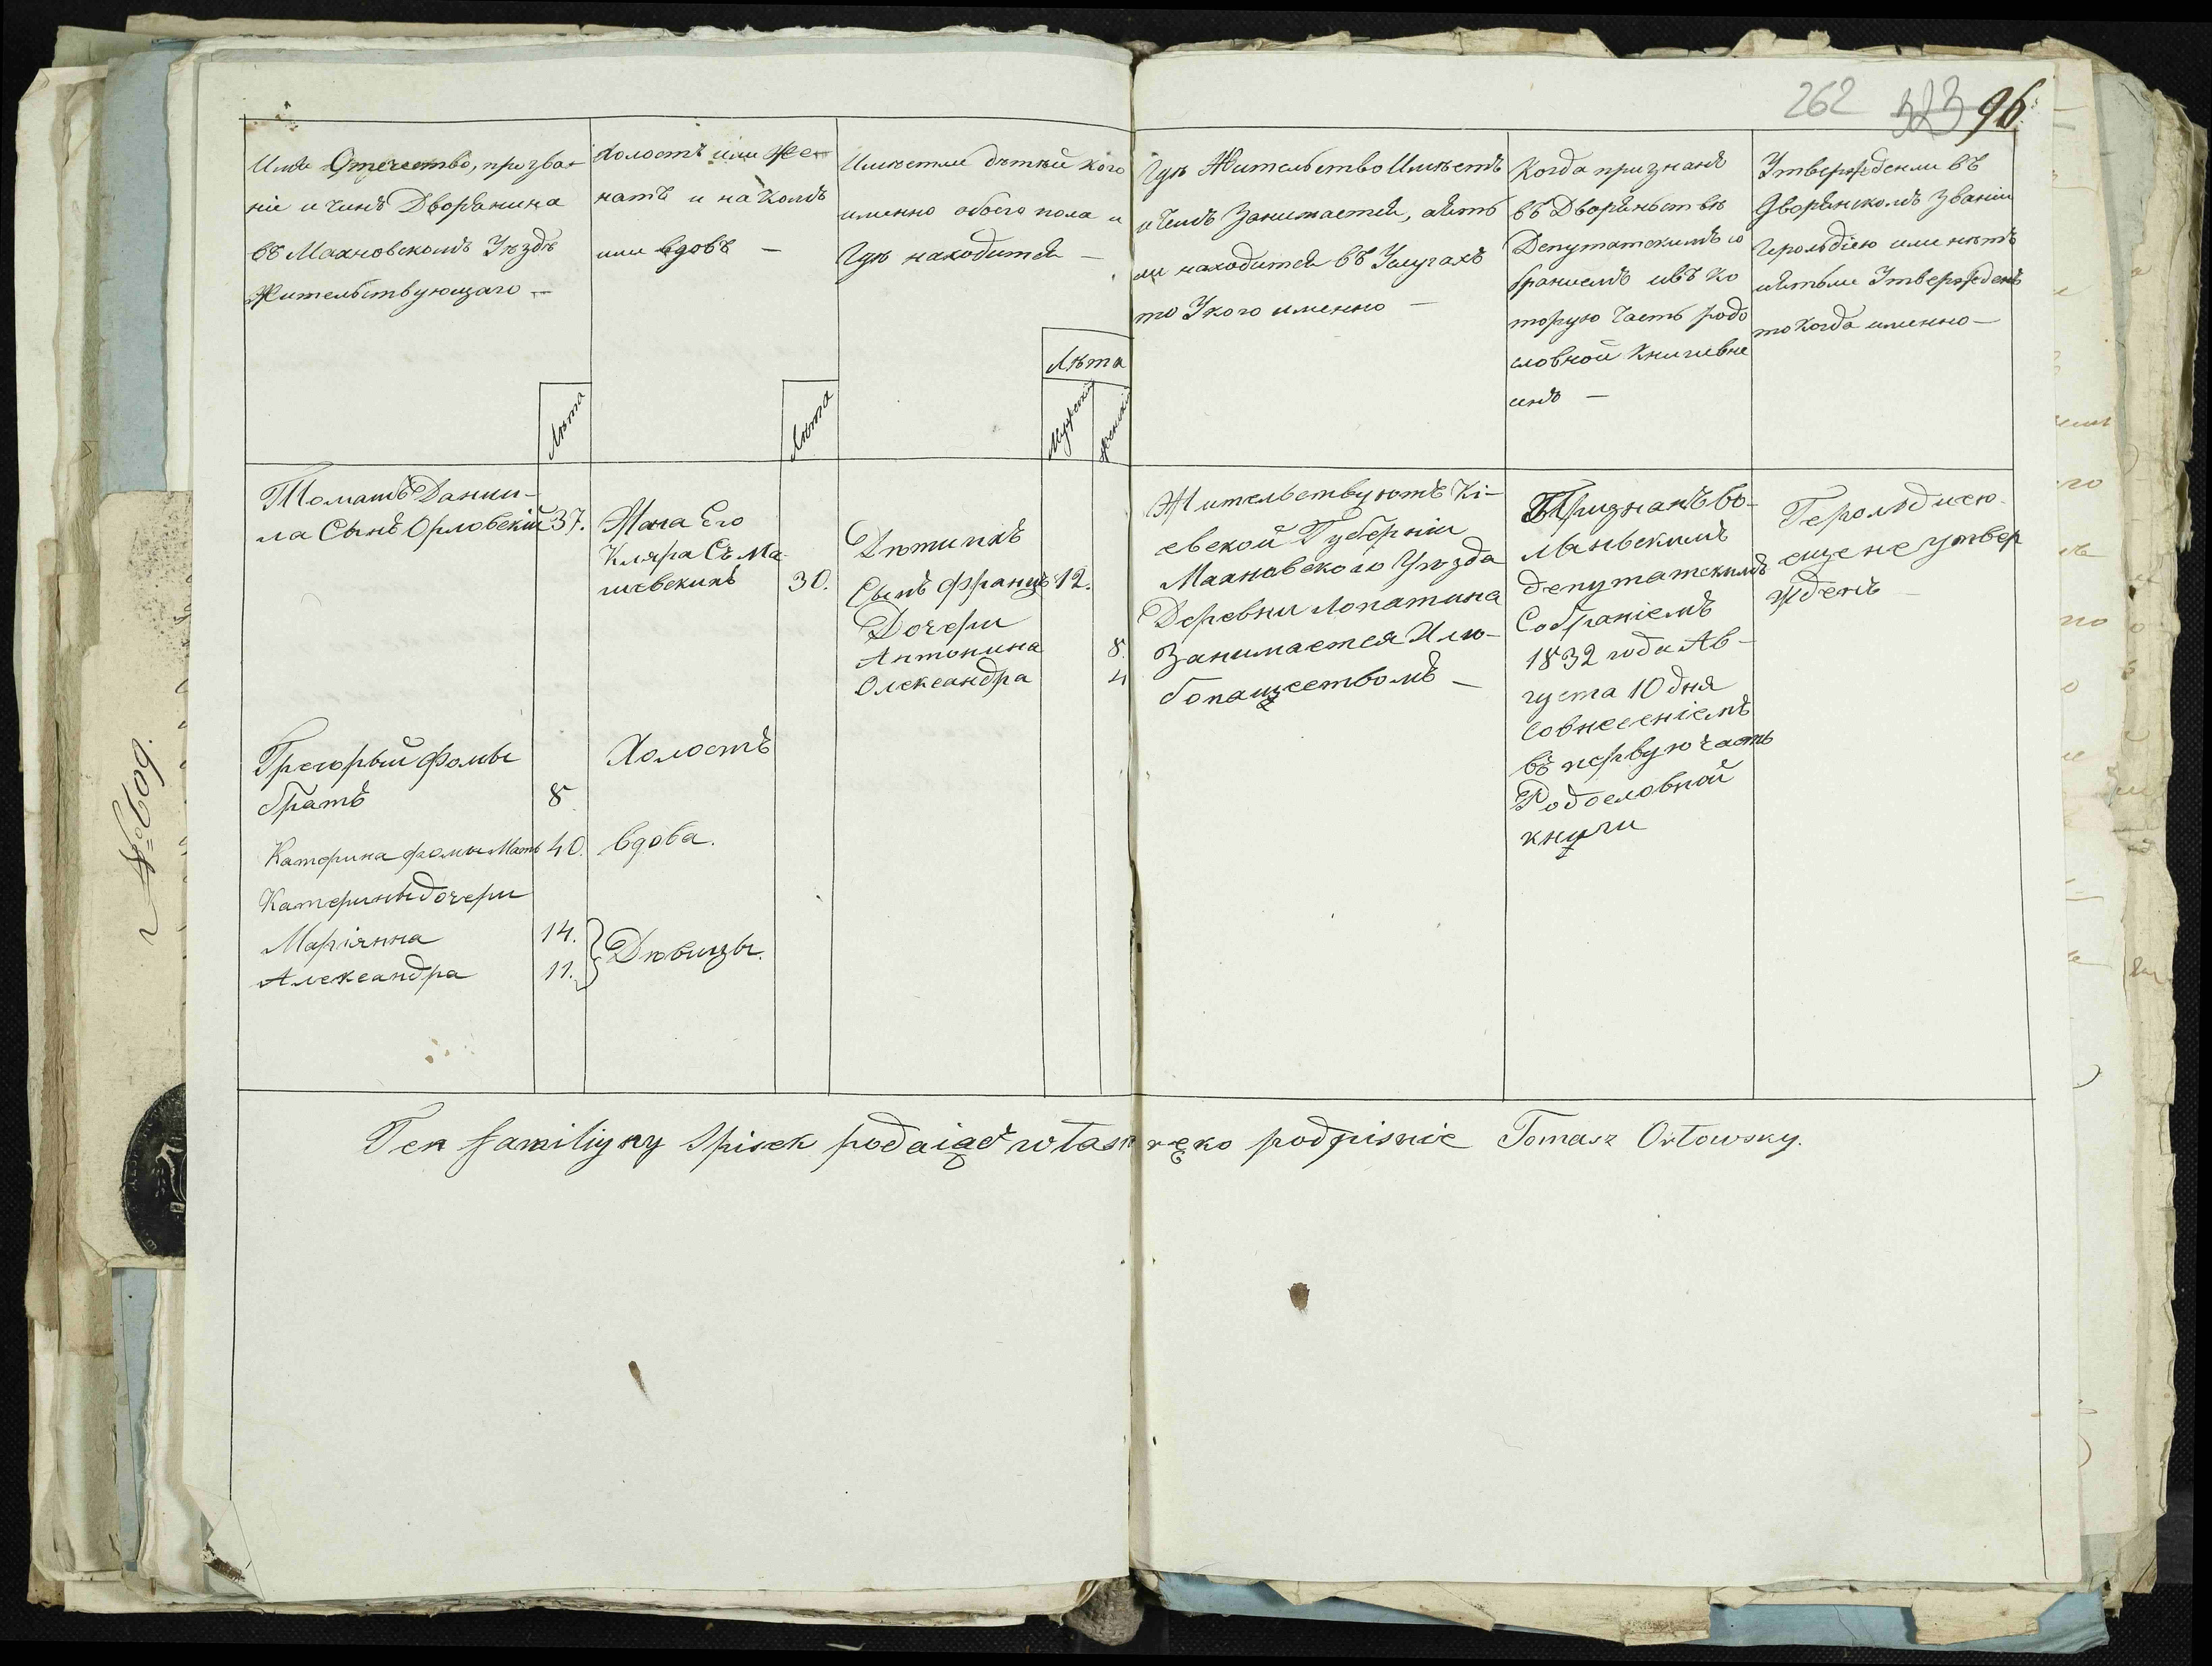 262 323 96.
Имя Отчество, прозва-
ніе и чинъ Дворянина
въ Махновскомъ Уѣздѣ
Жительствующаго —
Лѣта
Холостъ или Же-
натъ и на комъ
или вдовъ —
Лѣта
Имѣетли дѣтей кого
именно обоего пола и
гдѣ находится —
Лѣта
Мужескій
Женскій
Гдѣ Жительство Имѣетъ
и Чемъ Занимается, аесть
ли находится въ Услугахъ
то Укого именно —
Когда признанъ
въ Дворянствѣ
Депутатскимъ со
браніемъ ивъ ко
торую Часть родо
словной Книги вне
сенъ —
Утвержденли въ
Дворянскомъ Званіи
Герольдіею или нѣтъ
иестьли Утвержденъ
то Когда именно —
Томашъ Дании-
ла Сынъ Орловскій 37.
Жена Его
Кляра Съ Ма-
шевскихъ 30.
Дѣти ихъ
Сынъ Францъ 12.
Дочери
Антонина 8.
Олександра 4
Жительствуютъ Кі-
евской Губерніи
Махновского Уѣзда
Деревни Лопатина
Занимается Хлѣ-
бопашеством —
Признанъ Во-
лыньскимъ
депутатскимъ
Собраніемъ
1832 года Ав-
густа 10 дня
Совнесеніемъ
въ первую часть
Родословной
книги
Герольдиею
еще не утвер
жденъ —
Грегорый Фомы
братъ 8
Холостъ
Катерина Фомы Мать 40. вдова.
Катерины дочери
Маріянна 14.
Александра 11.
Дѣвицы.
Ten familiyny Spisek podaiąc własn ręko podpisuie Tomasz Orłowsky.
№ 609.